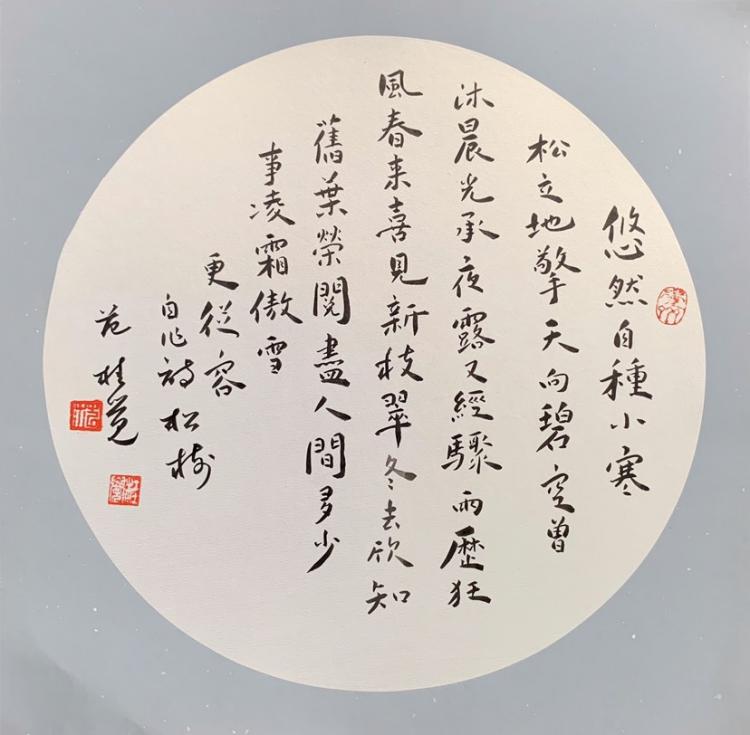 悠然自種小寒
松立地擎天向碧空曾
沐晨光承夜露又經驟雨歷狂
風春来喜見新枝翠冬去欣知
舊葉榮閱盡人間多少
事凌霜傲雪
更從容
自作詩松樹
范桂覓